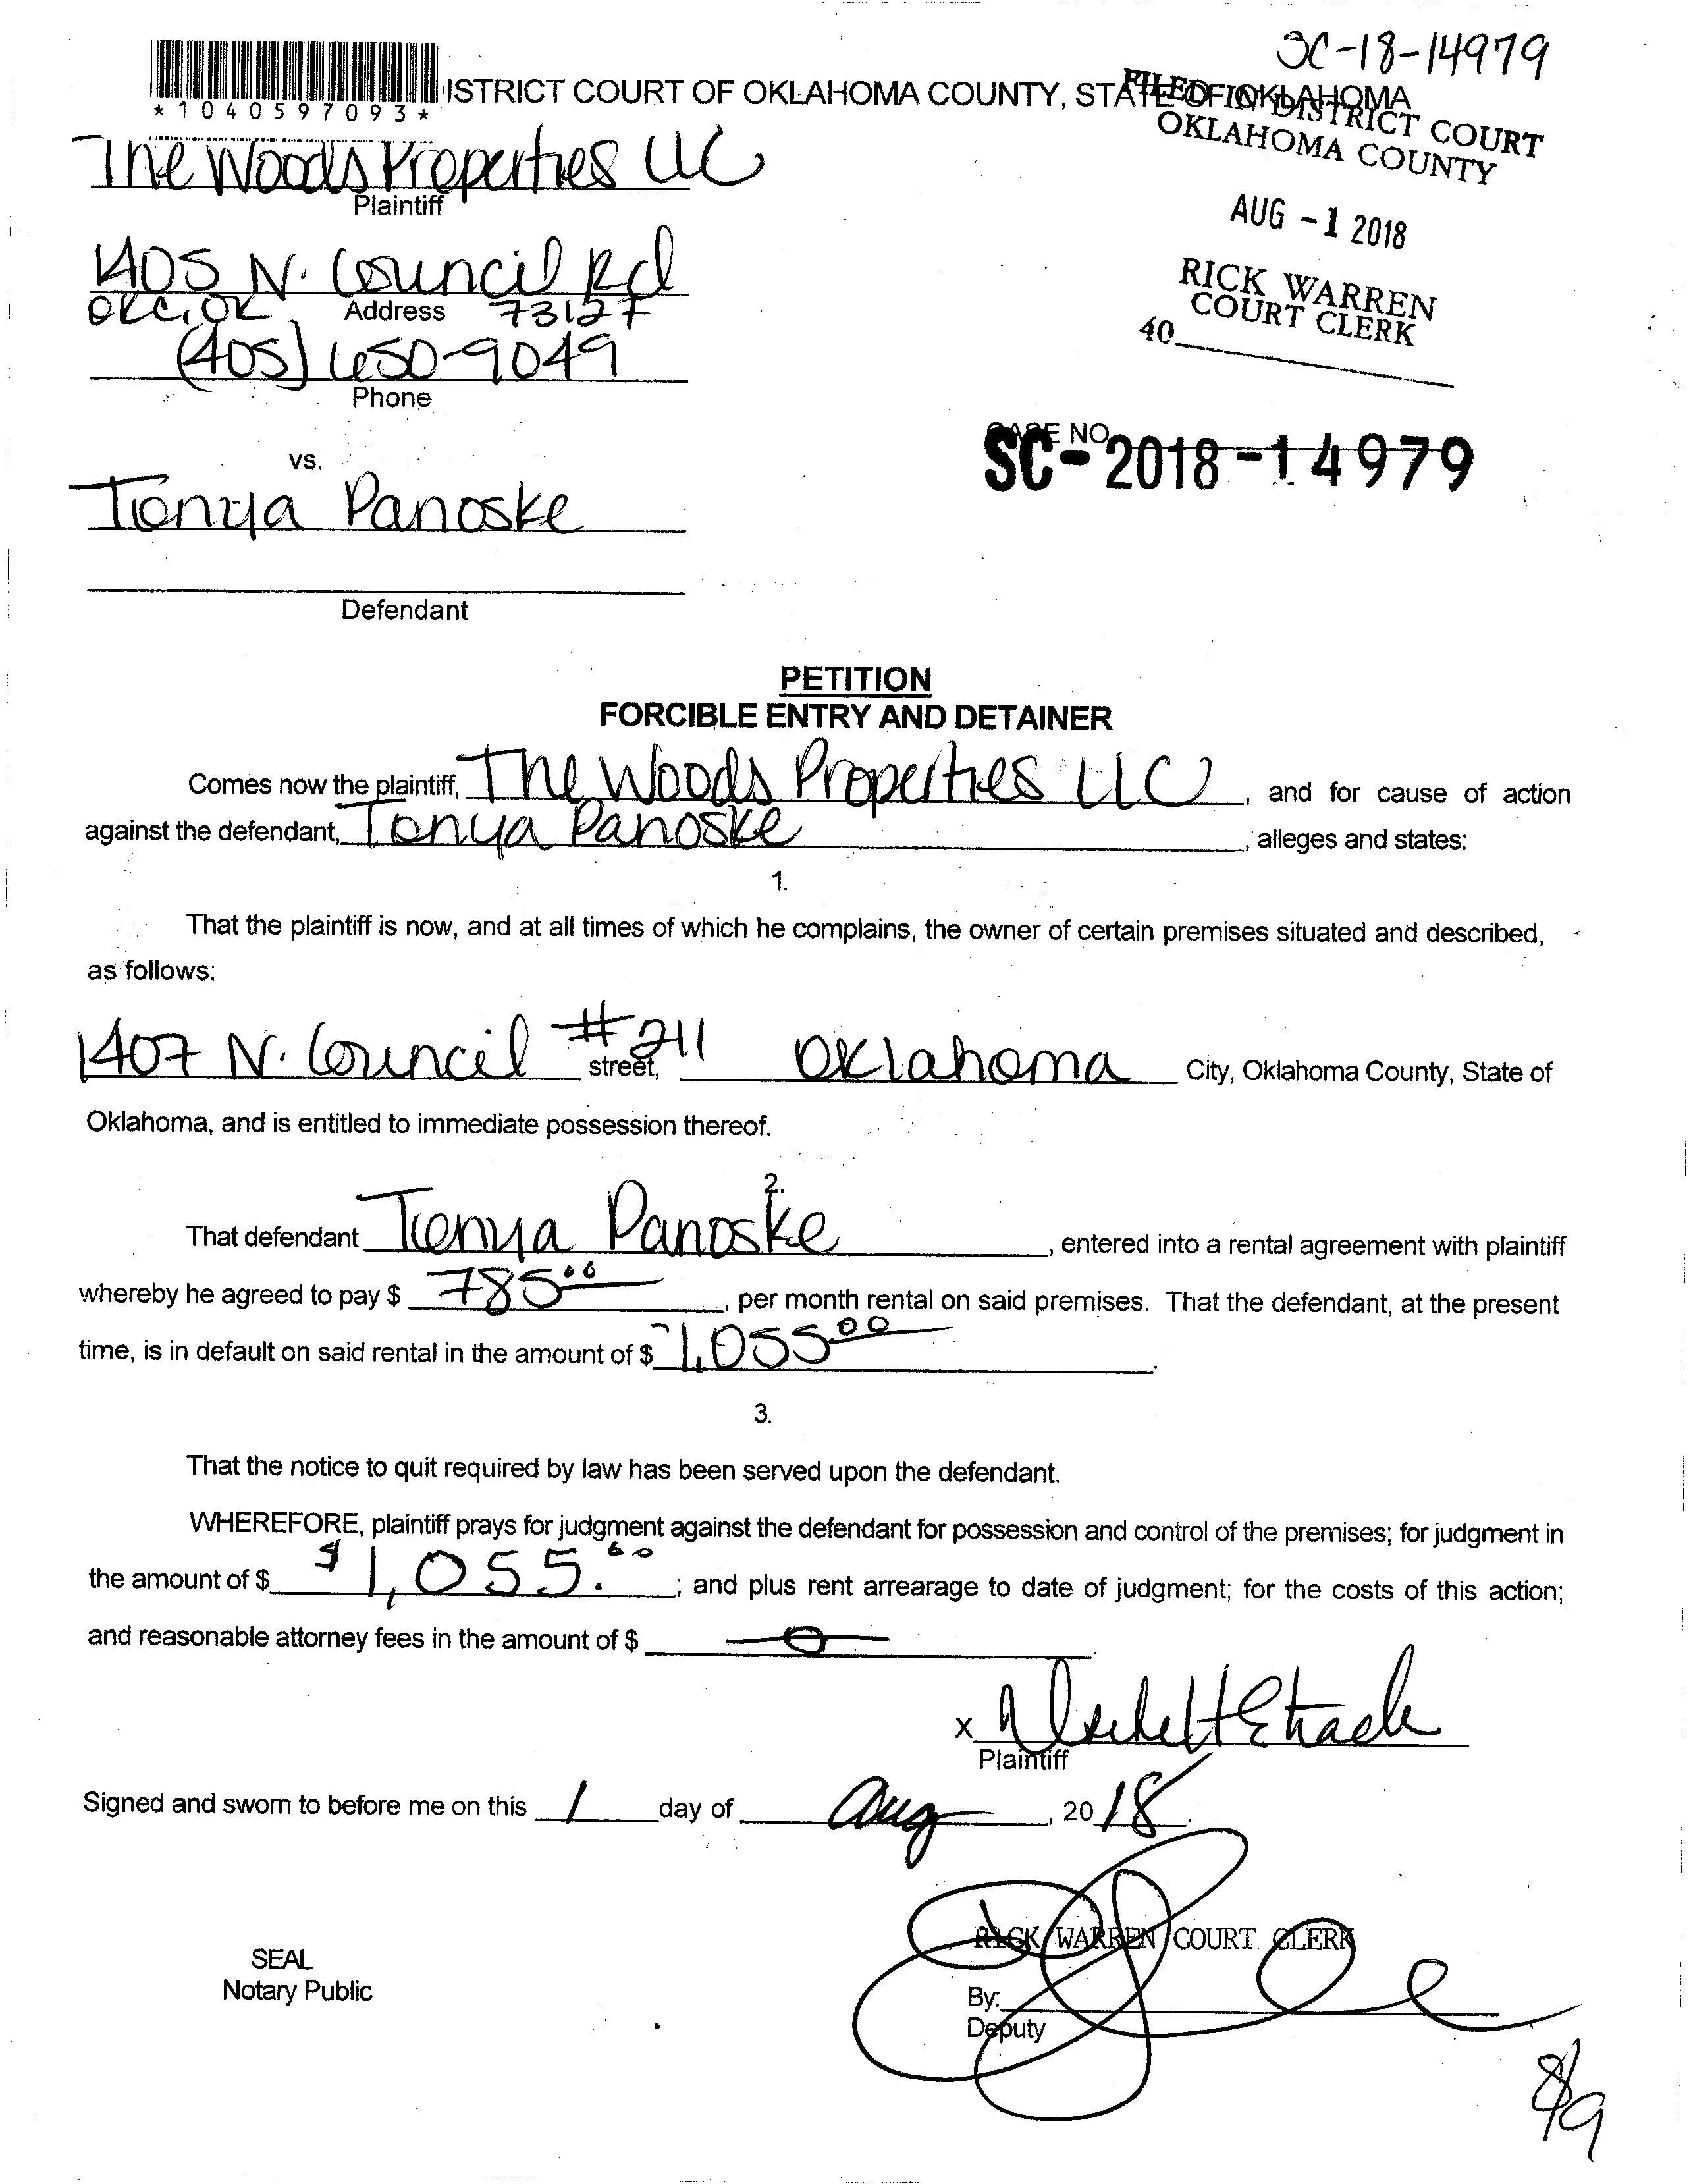 SC-18-14979
*1040597093*
ISTRICT COURT OF OKLAHOMA COUNTY, STATE OF OKLAHOMA
FILED IN DISTRICT COURT
OKLAHOMA COUNTY
The Woods Properties LLC
Plaintiff
AUG -1 2018
1405 N. Council Rd
OKC, OK Address 73127
RICK WARREN
COURT CLERK
40
(405) 650-9049
Phone
CASE NO
SC-2018-14979
vs.
Tonya Panoske
Defendant
PETITION
FORCIBLE ENTRY AND DETAINER
Comes now the plaintiff, The Woods Properties LLC, and for cause of action
against the defendant, Tonya Panoske, alleges and states:
1.
That the plaintiff is now, and at all times of which he complains, the owner of certain premises situated and described,
as follows:
1407 N. Council #211 street, Oklahoma City, Oklahoma County, State of
Oklahoma, and is entitled to immediate possession thereof.
2.
That defendant Tonya Panoske, entered into a rental agreement with plaintiff
whereby he agreed to pay $ 785.00, per month rental on said premises. That the defendant, at the present
time, is in default on said rental in the amount of $ 1,055.00.
3.
That the notice to quit required by law has been served upon the defendant.
WHEREFORE, plaintiff prays for judgment against the defendant for possession and control of the premises; for judgment in
the amount of $ $1,055.00; and plus rent arrearage to date of judgment; for the costs of this action;
and reasonable attorney fees in the amount of $ 0.
X
Plaintiff
Signed and sworn to before me on this 1 day of Aug, 2018.
RICK WARREN COURT CLERK
SEAL
Notary Public
By:
Deputy
8/9